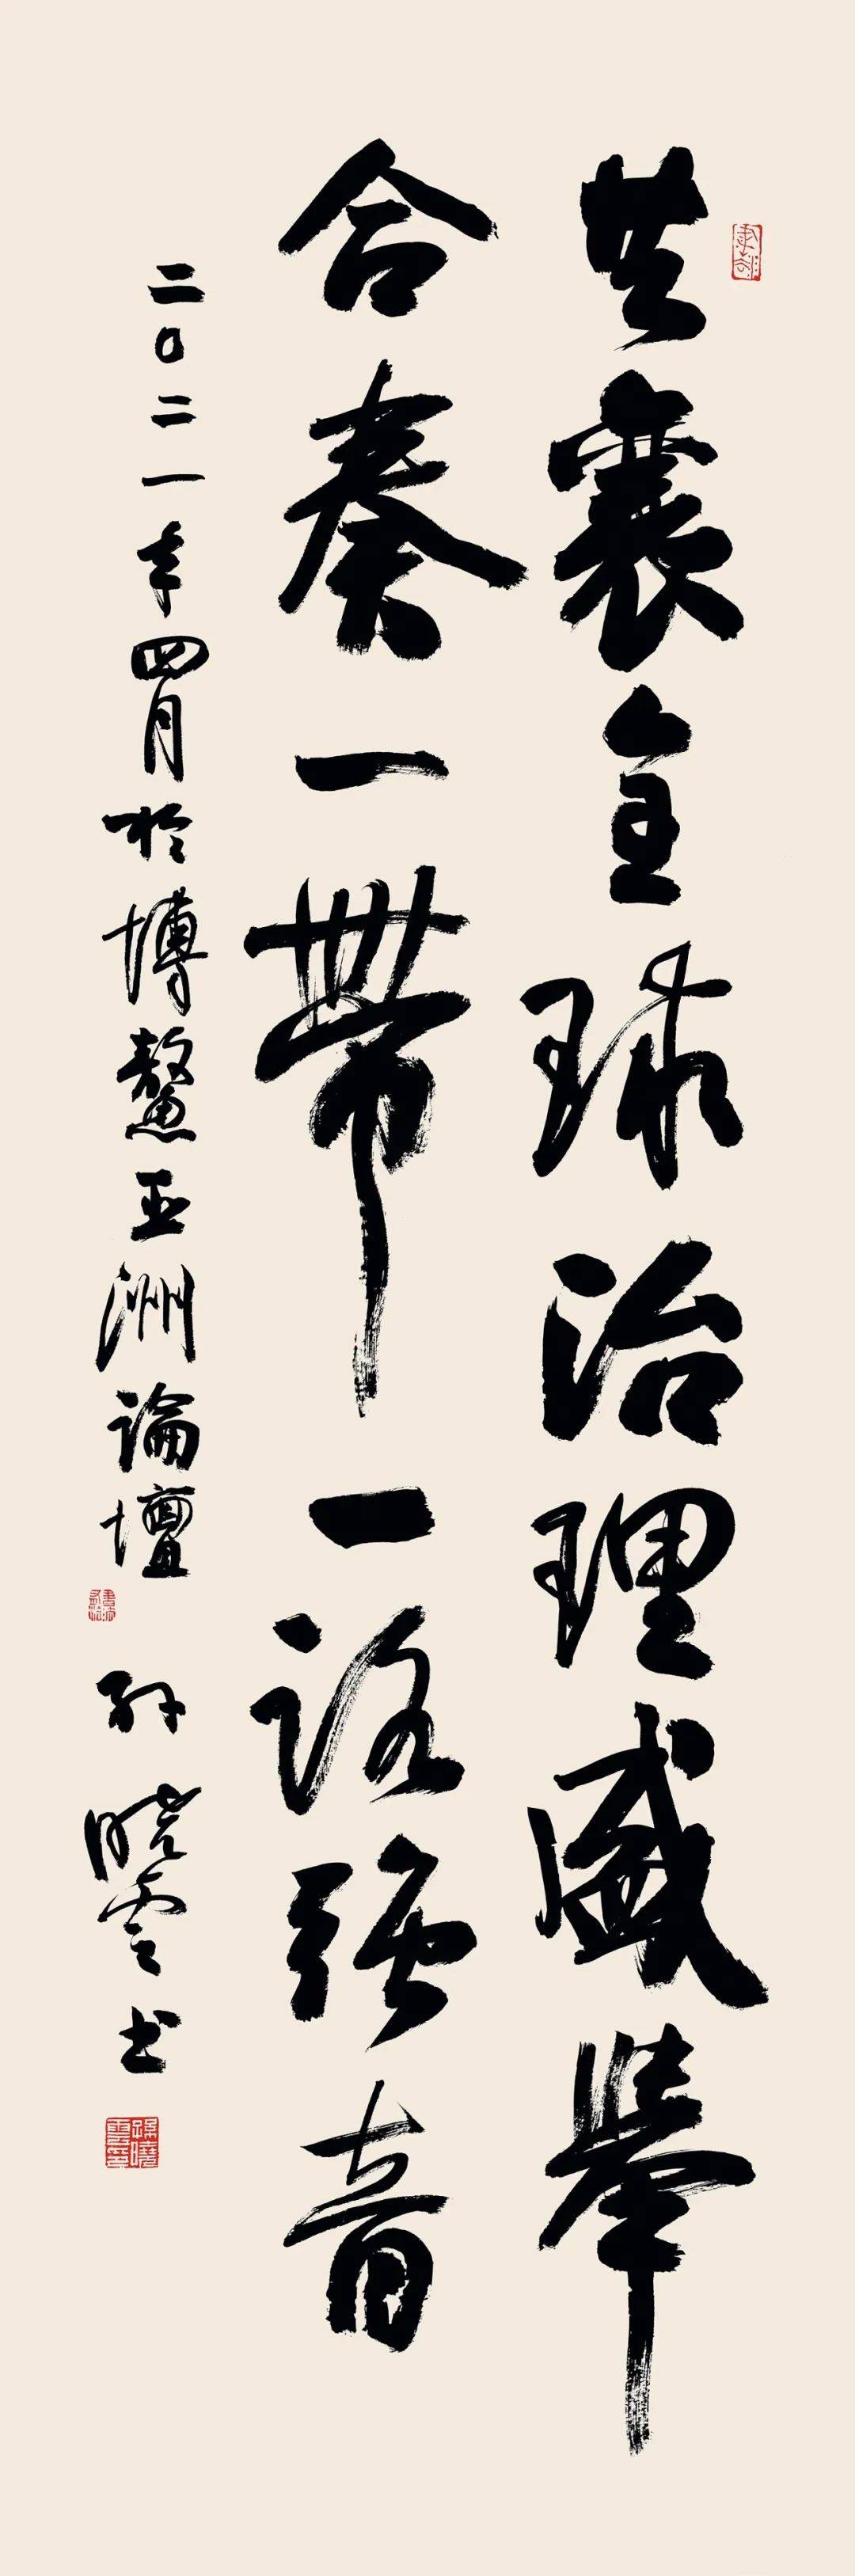 共襄全球治理盛舉
合奏一帶一路强音
二〇二一年四月於博鰲亞洲論壇 孫曉雲书